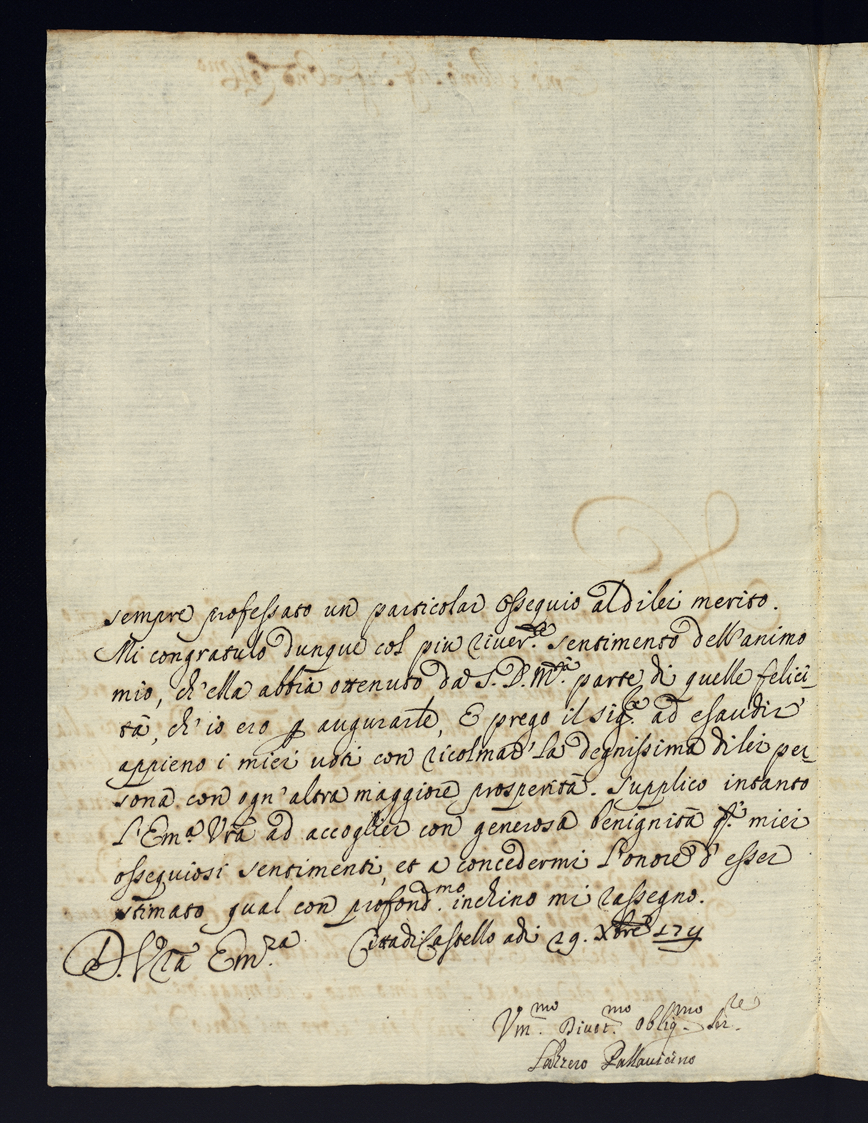 sempre professato un particolar ossequio al di lei merito.
Mi congratulo dunque col più river.te sentimento dell'animo
mio, ch'ella abbia ottenuto da S. D. M.tà parte di quelle felici-
tà, ch'io ero p augurarle, E prego il Sig.re ad esaudir
appieno i miei voti con ricolmar la degnissima di lei per-
sona con ogn'altra maggiore prosperità. Supplico intanto
l'Em.a Vra ad accoglier con generosa benignità q.ti miei
ossequiosi sentimenti, et a concedermi l'onore d'esser
stimato qual con profond.mo inchino mi rassegno.
D. Vra Em.za Città di Castello adi 29. Xbre
Vm.mo Divot.mo Oblig.mo Ser.re
Lazzero Pallavicino